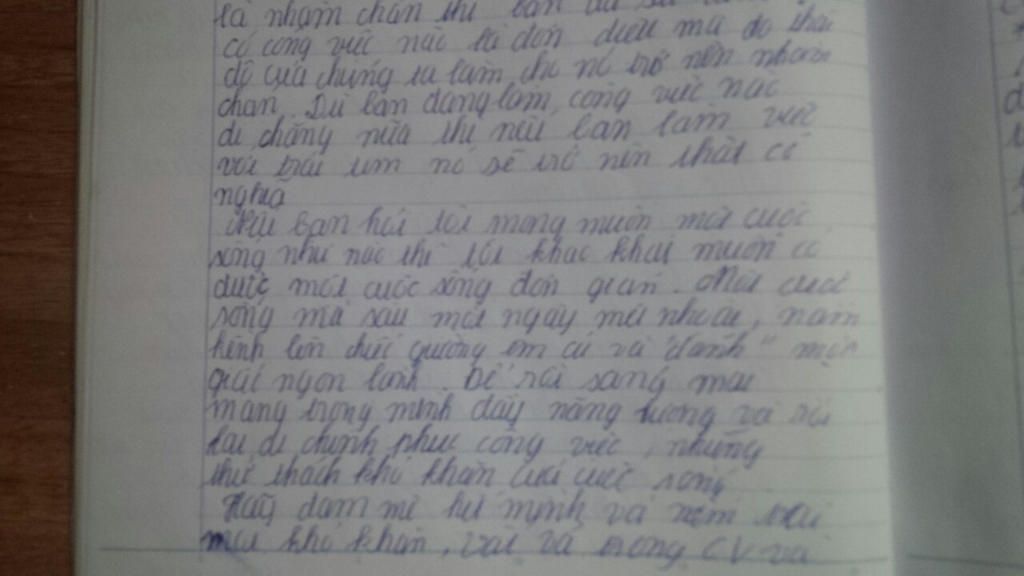 là nhàm chán thì bạn đã
có công việc nào là đơn điệu mà do thái
độ của chúng ta làm cho nó trở nên nhàm
chán. Dù bạn đang làm công việc nào
đi chăng nữa thì nếu bạn làm việc
với trái tim nó sẽ trở nên thật có
nghĩa
Nếu bạn hỏi tôi mong muốn một cuộc
sống như nào thì tôi khao khát muốn có
được một cuộc sống đơn giản. Một cuộc
sống mà sau một ngày mệt nhoài, nằm
kềnh lên chiếc giường êm ái và "đánh" một
giấc ngon lành. Để rồi sáng mai
mang trong mình đầy năng lượng và rồi
lại đi chinh phục công việc, những
thử thách khó khăn của cuộc sống
Hãy đam mê hết mình và nếm trải
mọi khó khăn, vất vả trong CV và